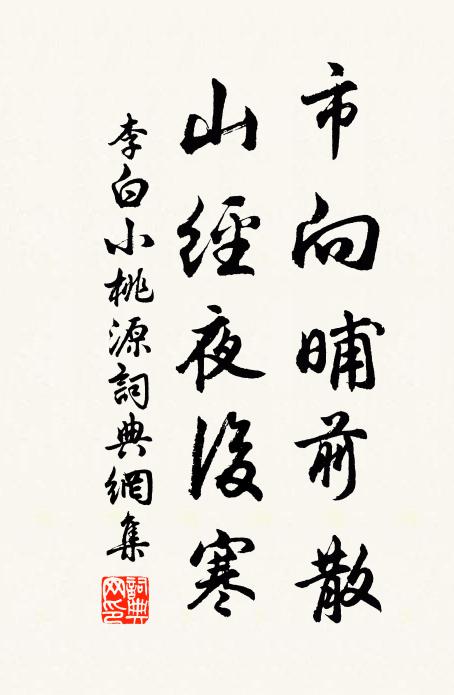 市向晡前散
山經夜後寒
李白小桃源詞典網集
詞典網印